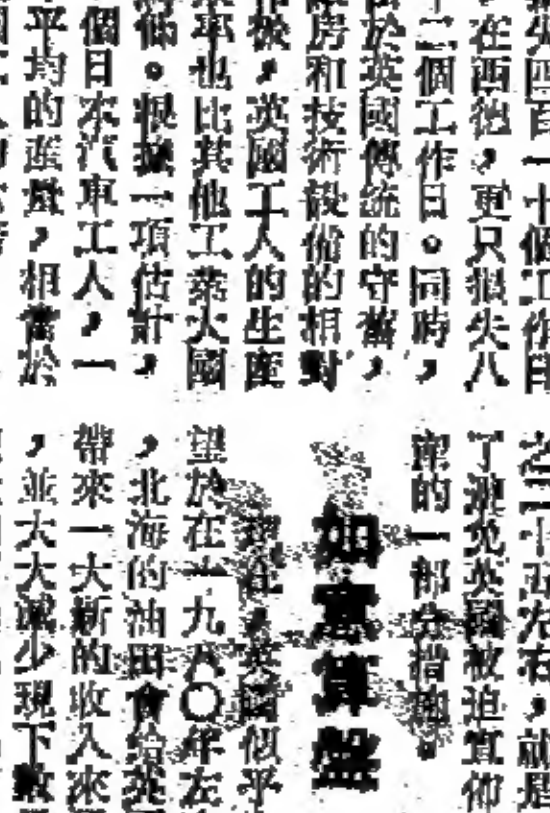 失四百一十個工作日
在西德，更只損失八
十二個工作日。同時，
於英國傳統的守舊，
房和技術設備的相對
極，英國工人的生產
率也比其他工業大國
低。根據一項估計，
個日本汽車工人，一
平均的產量，相當於
之二十五左右，就是
了避免英國被迫宣佈
產的一部分措施。
如意算盤
現在，英國似乎
望於在一九八〇年左
，北海的油田會給英
帶來一大新的收入來
，並大大減少現下